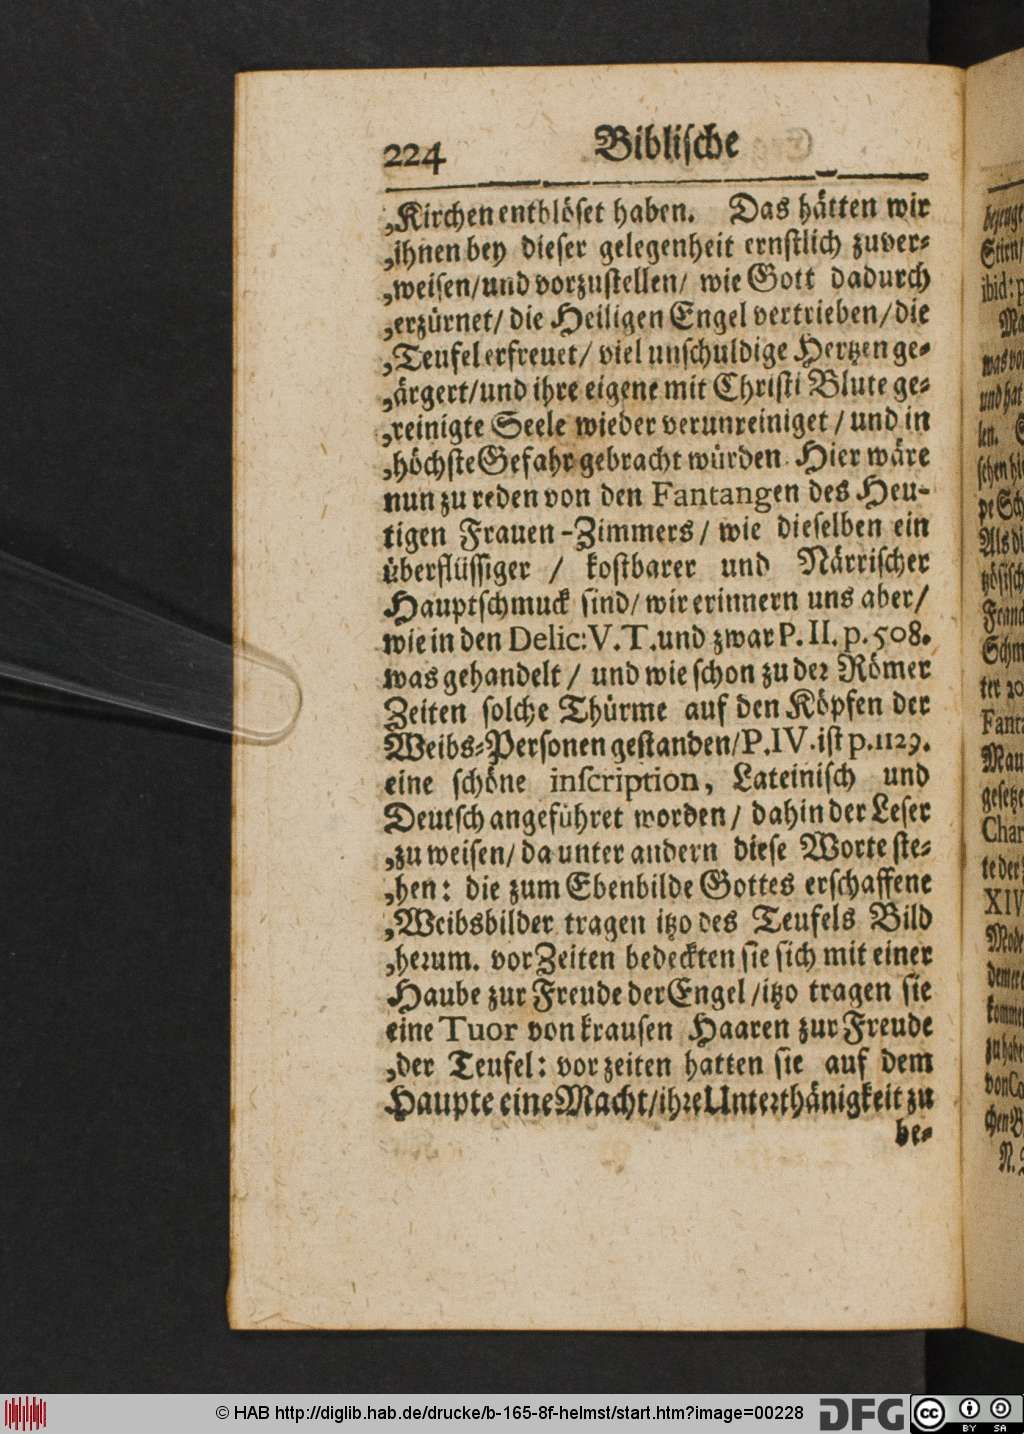 224 Biblische
„Kirchen entblöset haben. Das hätten wir
„ihnen bey dieser gelegenheit ernstlich zuver-
„weisen/und vorzustellen/ wie Gott dadurch
„erzürnet/ die Heiligen Engel vertrieben/die
„Teufel erfreuet/ viel unschuldige Hertzen ge-
„ärgert/und ihre eigene mit Christi Blute ge-
„reinigte Seele wieder verunreiniget / und in
„höchste Gefahr gebracht würden. Hier wäre
nun zu reden von den Fantangen des Heu-
tigen Frauen-Zimmers / wie dieselben ein
überflüssiger / kostbarer und Närrischer
Hauptschmuck sind/ wir erinnern uns aber/
wie in den Delic: V. T. und zwar P. II. p. 508.
was gehandelt / und wie schon zu der Römer
Zeiten solche Thürme auf den Köpfen der
Weibs-Personen gestanden/P. IV. ist p. 1129.
eine schöne inscription, Lateinisch und
Deutsch angeführet worden / dahin der Leser
„zu weisen/ da unter andern diese Worte ste-
„hen: die zum Ebenbilde Gottes erschaffene
„Weibsbilder tragen itzo des Teufels Bild
„herum. vor Zeiten bedeckten sie sich mit einer
Haube zur Freude der Engel /itzo tragen sie
eine Tuor von krausen Haaren zur Freude
„der Teufel: vor zeiten hatten sie auf dem
Haupte eine Macht/ihre Unterthänigkeit zu
be-
bezeuge
Stirn/
ibid: p
was vo
und hat
len.
Als di
Schm
ter 20
Fanta
Mau
gesetze
Char
te der
XIV
Mode
kommen
zu habe
von Co
chen B
N.
© HAB http://diglib.hab.de/drucke/b-165-8f-helmst/start.htm?image=00228
DFG
cc BY SA